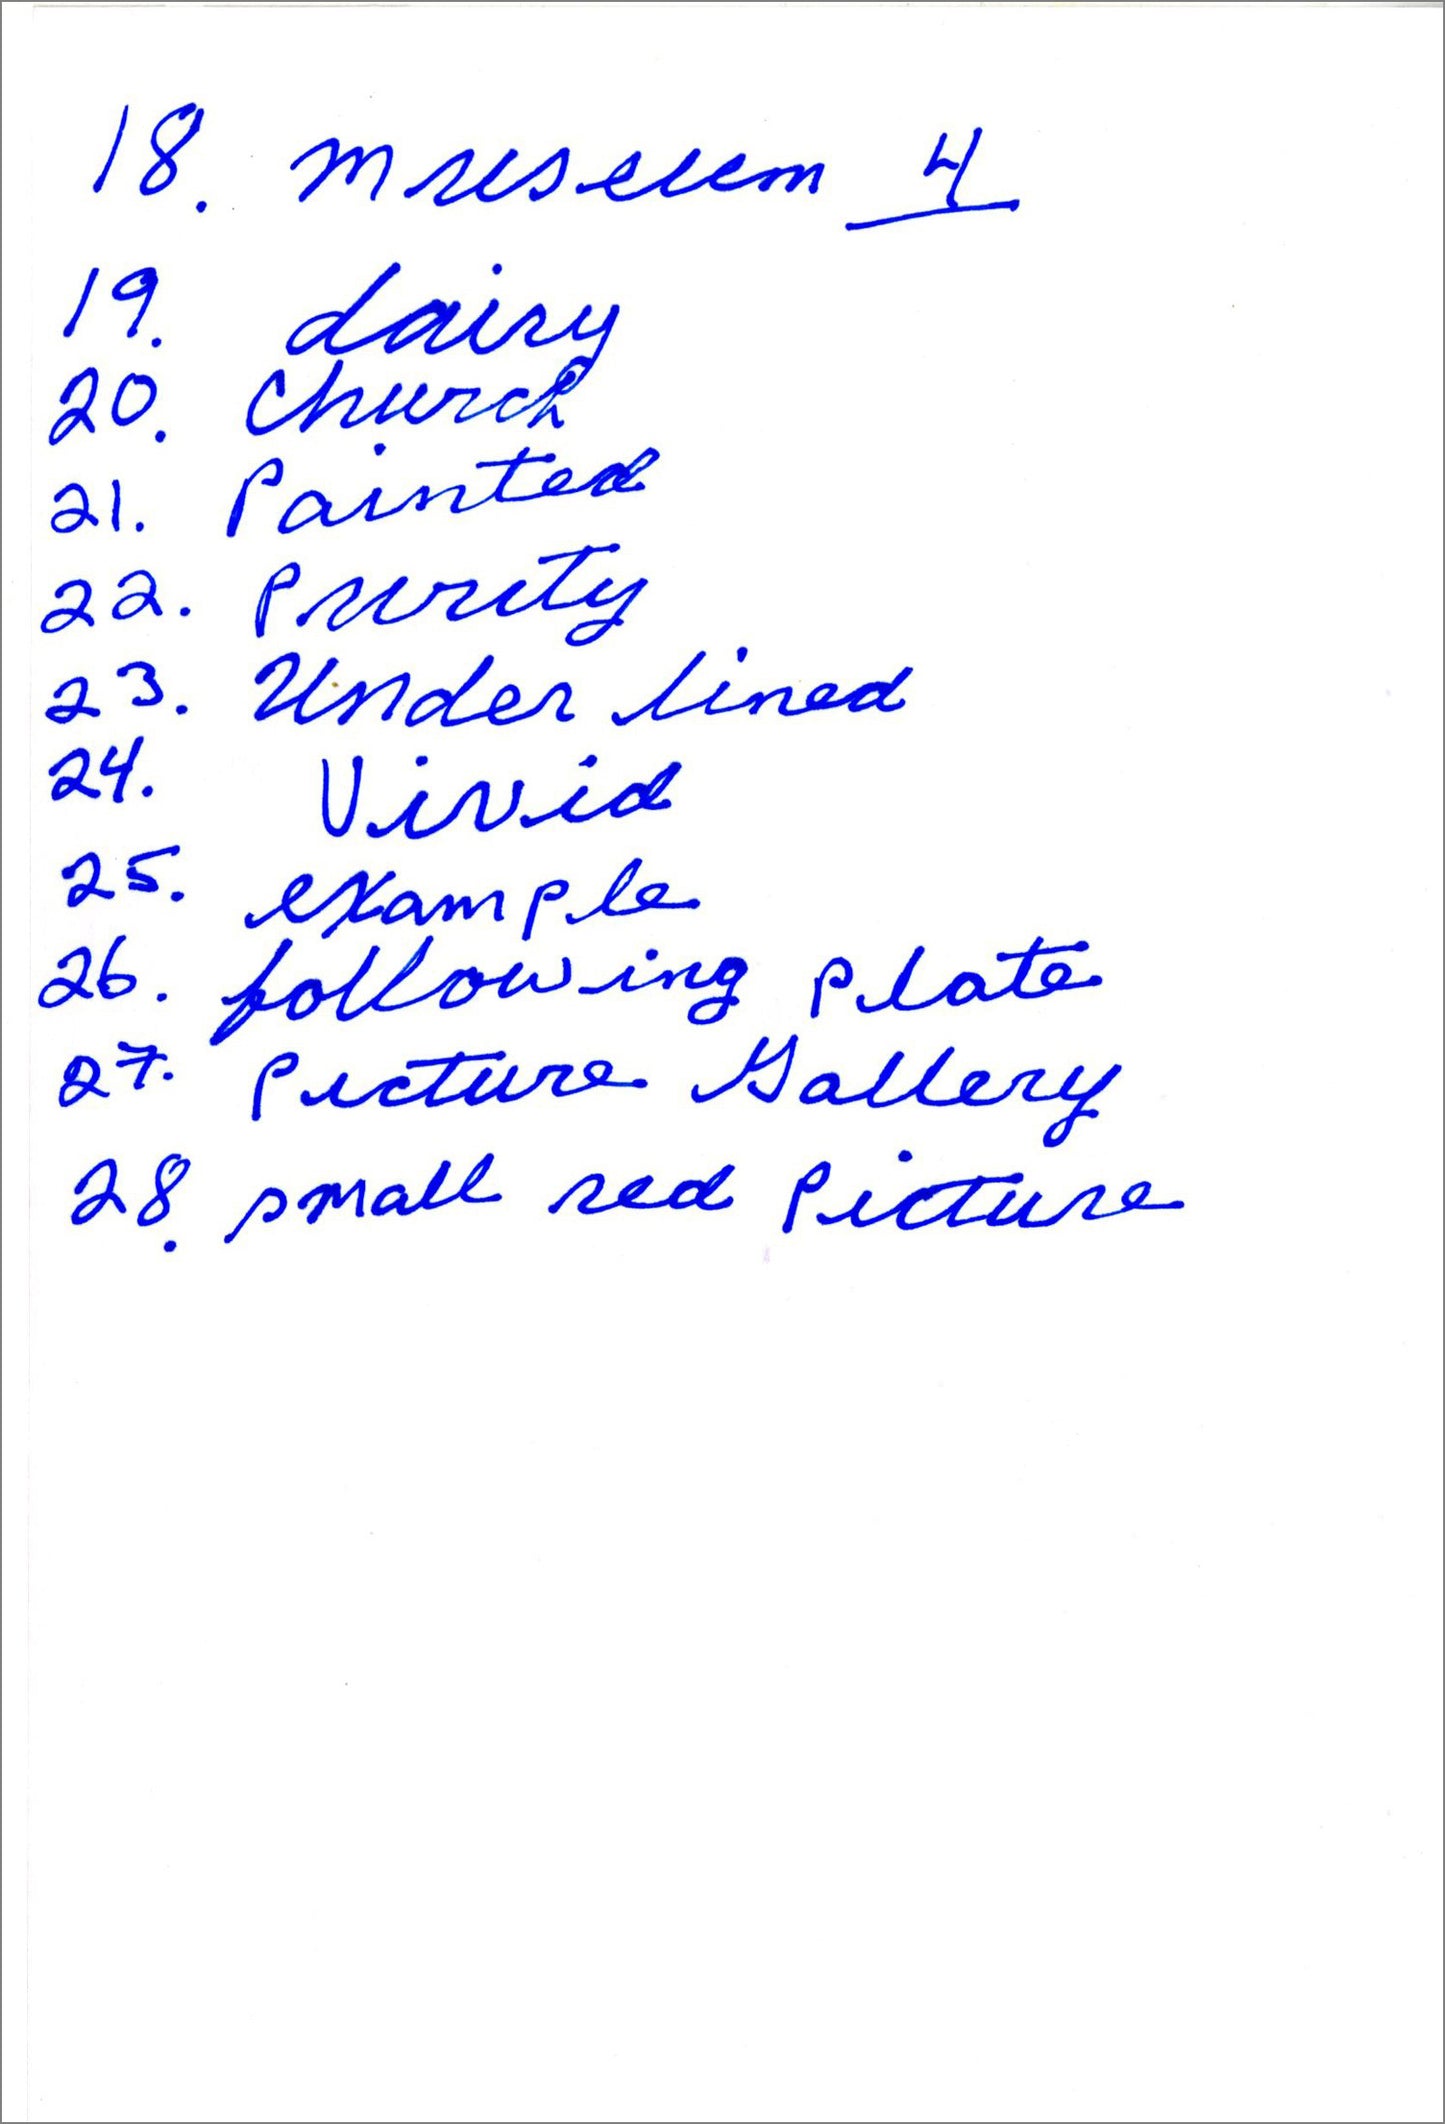 18. Museum 4
19. dairy
20. Church
21. Painted
22. Purity
23. Under lined
24. Vivid
25. example
26. following plate
27. Picture Gallery
28. small red Picture